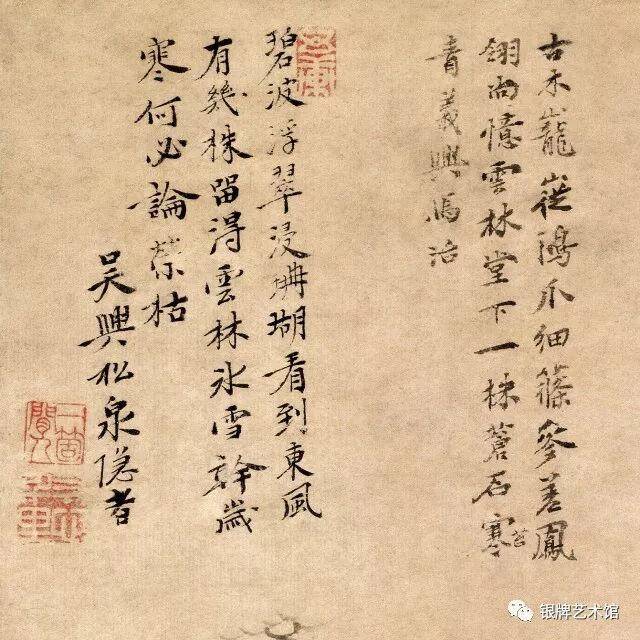 古木巃嵸鴻爪細篠參差鳳
翎尚憶雲林堂下一株蒼石寒苔
青義興馬治
碧波浮翠浸珊瑚看到東風
有幾株留得雲林氷雪幹歲
寒何必論榮枯
吳興松泉隱者
一箇閒人
银牌艺术馆